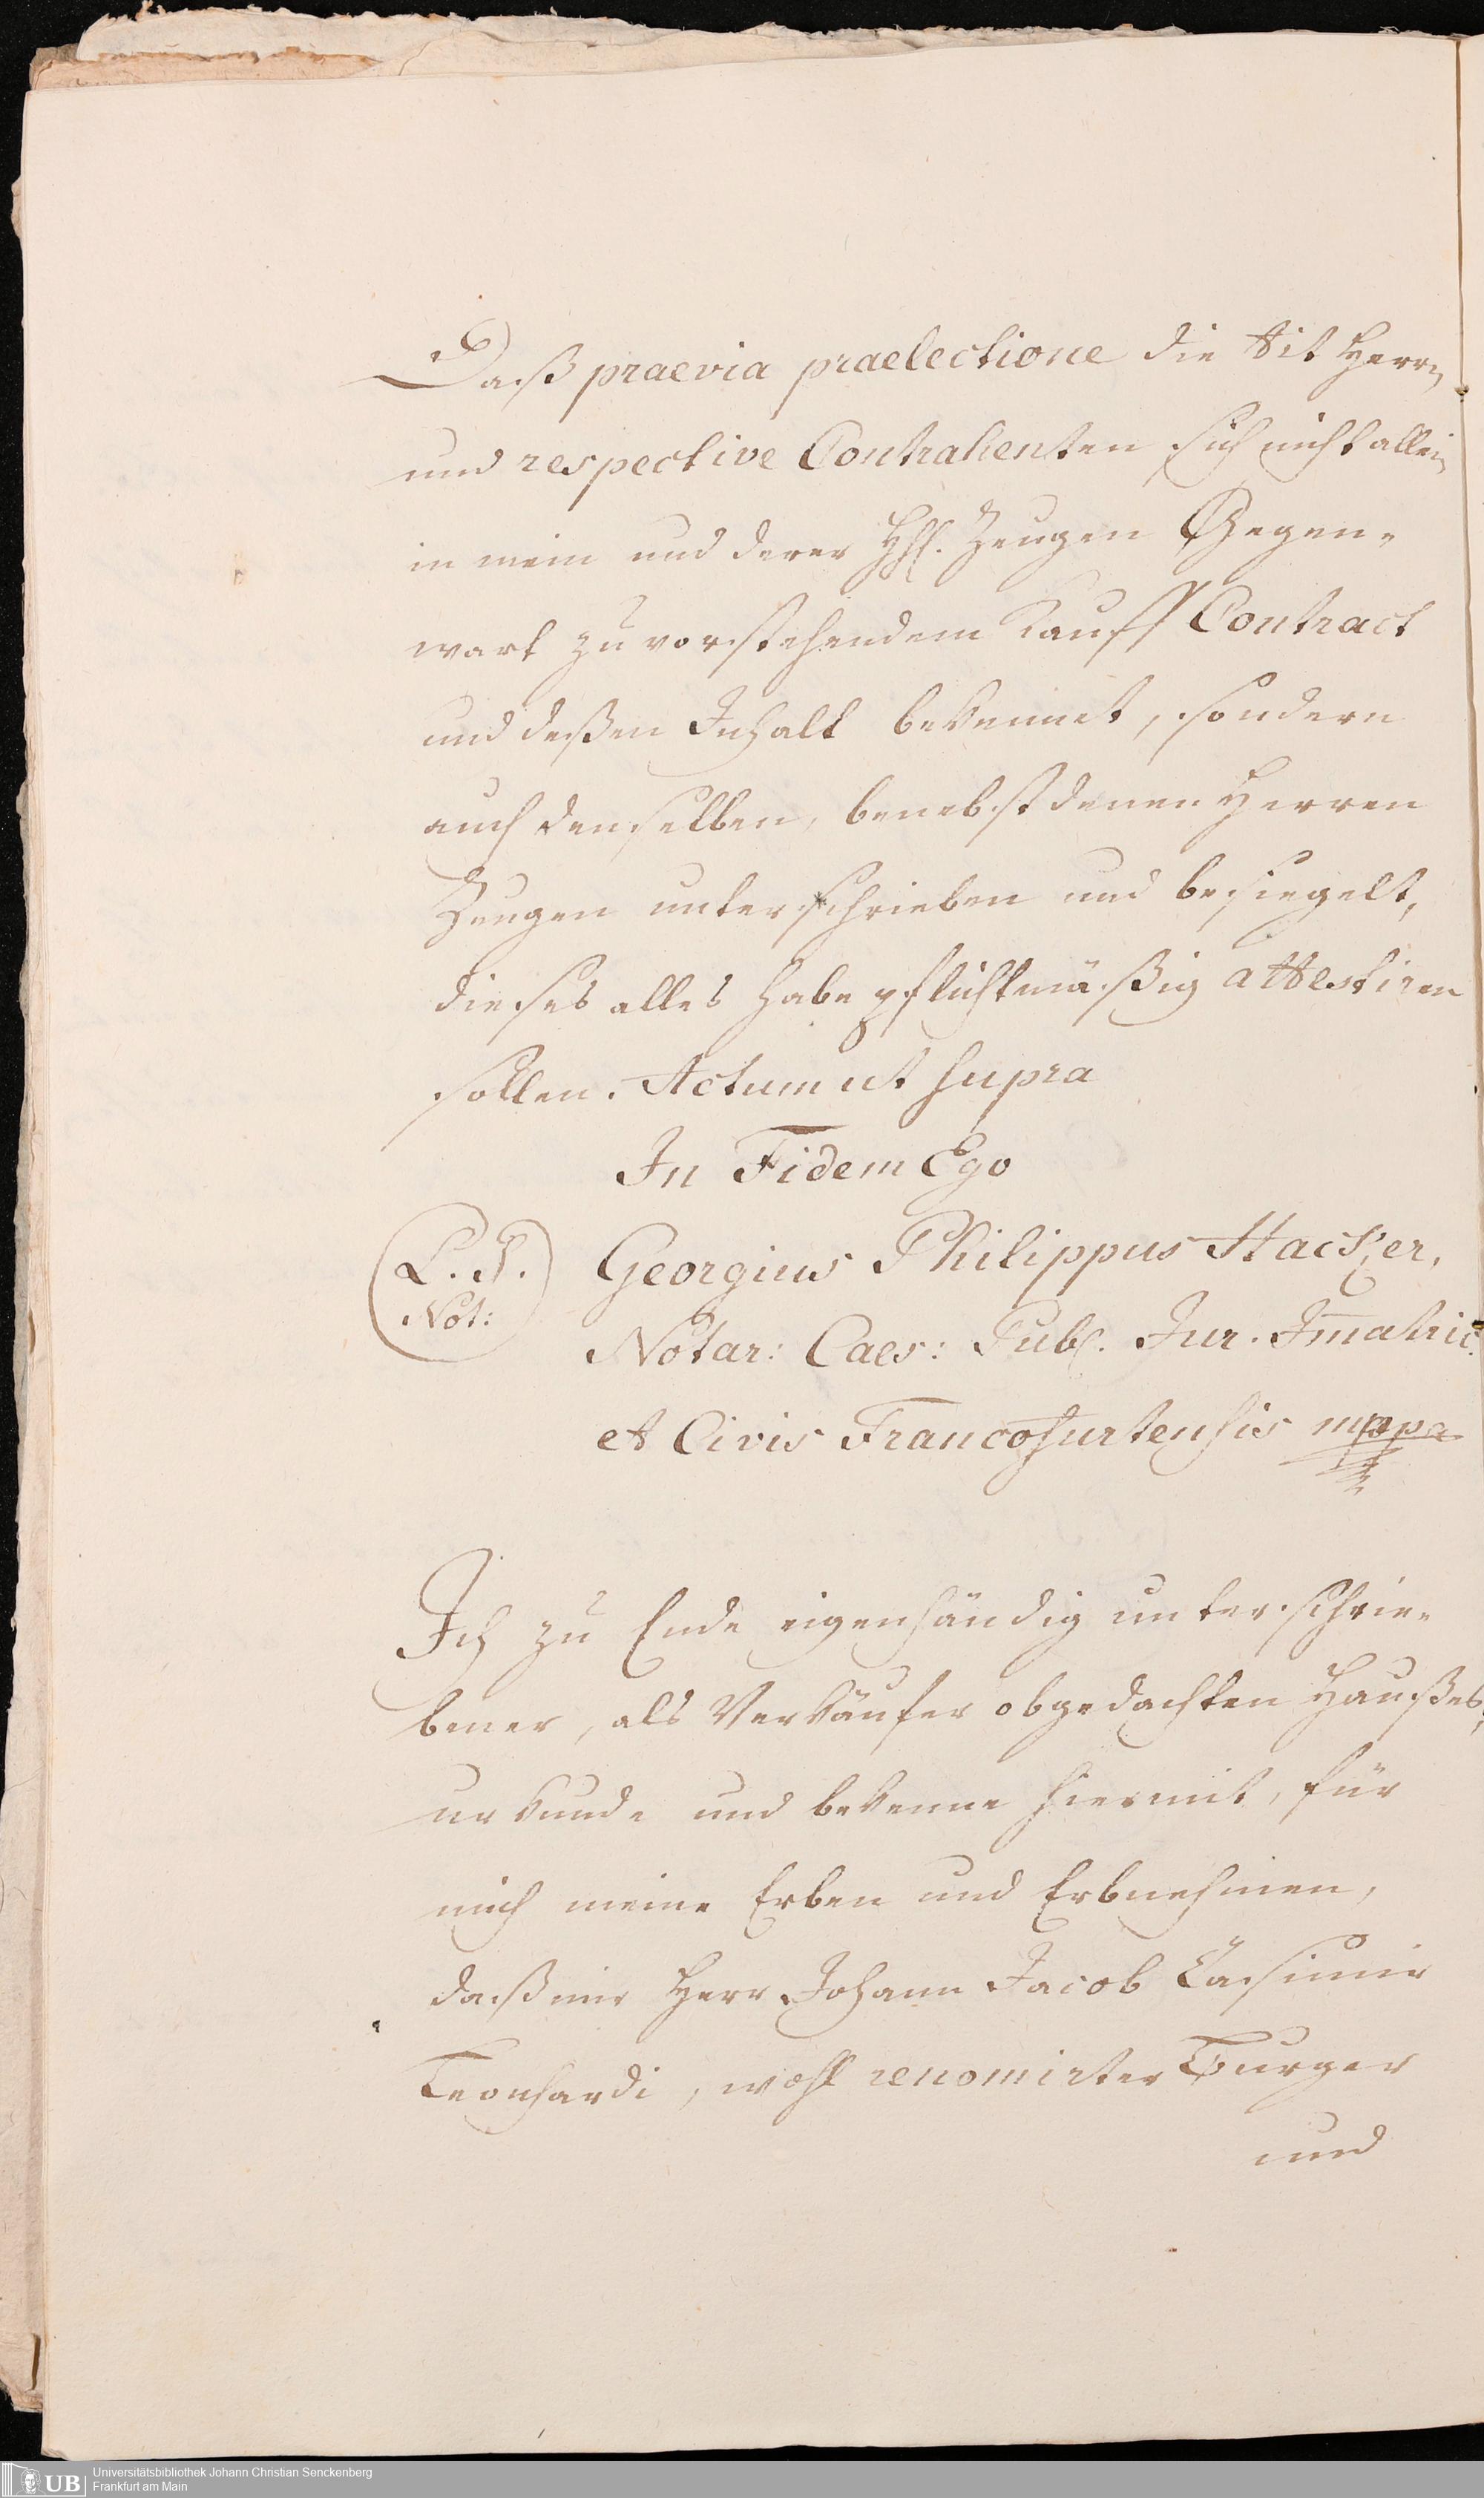 Daß praevia praelectione die tit Herrn
und respective Contrahenten sich nicht allein
in mein und derer HH. Zeugen Gegen-
wart zu vorstehendem Kauff Contract
und deßen Inhalt bekennet, sondern
auch denselben, benebst denen Herren
Zeugen unterschrieben und besiegelt,
dieses alles habe pflichtmäßig attestiren
sollen. Actum ut supra
In Fidem Ego
L. S.
Not:
Georgius Philippus Hacker,
Notar: Caes: Publ. Jur. Im̅atric.
et Civis Francofurtensis mppa
Ich zu Ende eigenhändig unterschrie-
bener, als Verkäufer obgedachten Haußes,
urkunde und bekenne hiermit, für
mich meine Erben und Erbnehmen,
daß mir Herr Johann Jacob Casimir
Leonhardi, wohl renomirter Burger
und
Universitätsbibliothek Johann Christian Senckenberg
Frankfurt am Main
UB